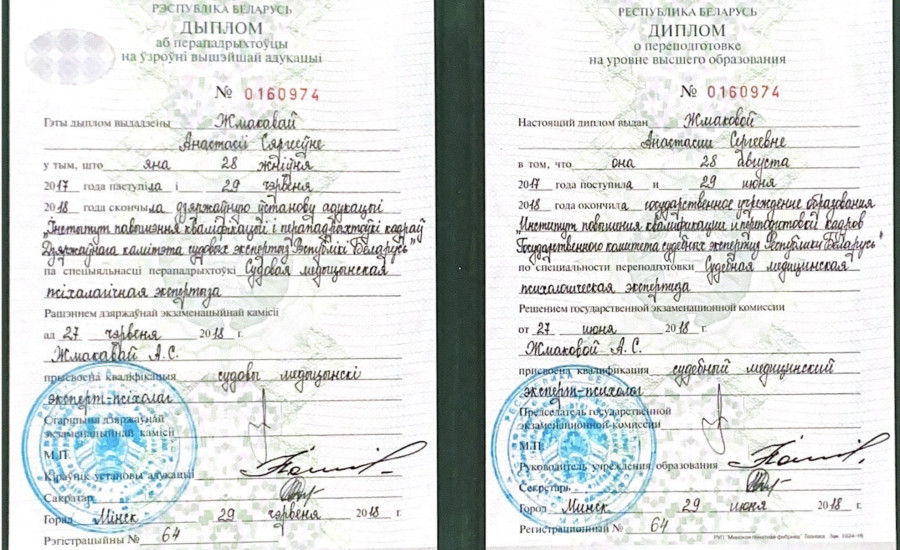 РЭСПУБЛІКА БЕЛАРУСЬ
ДЫПЛОМ
аб перападрыхтоўцы
на ўзроўні вышэйшай адукацыі
№ 0160974
Гэты дыплом выдадзены Жмакавай
Анастасіі Сяргееўне
у тым, што яна 28 жніўня
2017 года паступіла і 29 чэрвеня
2018 года скончыла дзяржаўную ўстанову адукацыі
„Інстытут павышэння кваліфікацыі і перападрыхтоўкі кадраў
Дзяржаўнага камітэта судовых экспертыз Рэспублікі Беларусь"
па спецыяльнасці перападрыхтоўкі Судовая медыцынская
псіхалагічная экспертыза
Рашэннем дзяржаўнай экзаменацыйнай камісіі
ад 27 чэрвеня 2018 г.
Жмакавай А.С.
прысвоена кваліфікацыя судовы медыцынскі
эксперт-псіхолаг
Старшыня дзяржаўнай
экзаменацыйнай камісіі
М.П.
Кіраўнік установы адукацыі
Сакратар
Горад Мінск 29 чэрвеня 2018 г.
Рэгістрацыйны № 64
РЕСПУБЛИКА БЕЛАРУСЬ
ДИПЛОМ
о переподготовке
на уровне высшего образования
№ 0160974
Настоящий диплом выдан Жмаковой
Анастасии Сергеевне
в том, что она 28 августа
2017 года поступила и 29 июня
2018 года окончила государственное учреждение образования
„Институт повышения квалификации и переподготовки кадров
Государственного комитета судебных экспертиз Республики Беларусь"
по специальности переподготовки Судебная медицинская
психологическая экспертиза
Решением государственной экзаменационной комиссии
от 27 июня 2018 г.
Жмаковой А.С.
присвоена квалификация судебный медицинский
эксперт-психолог
Председатель государственной
экзаменационной комиссии
М.П.
Руководитель учреждения образования
Секретарь
Город Минск 29 июня 2018 г.
Регистрационный № 64